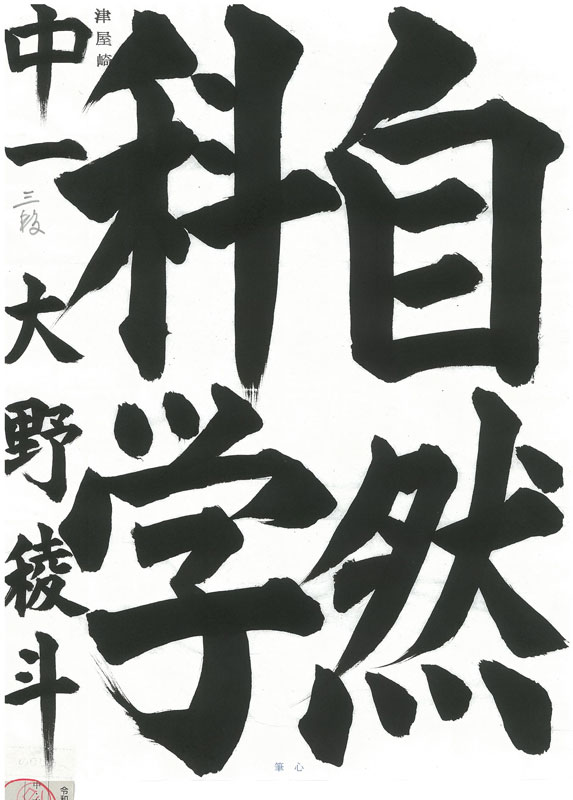 自然
科学
津屋崎
中一 大野稜斗
三段
筆心
令和